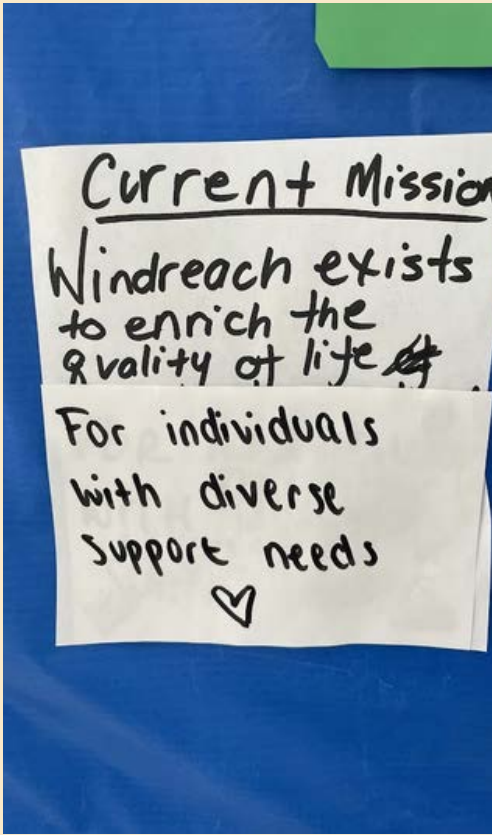 Current Mission
Windreach exists
to enrich the
quality of life
For individuals
with diverse
support needs